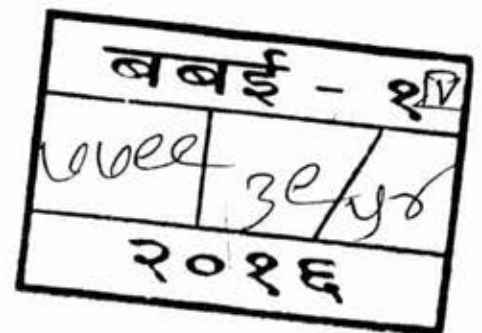 बबई - १ IV
७७९९ ३९/५४
२०१६